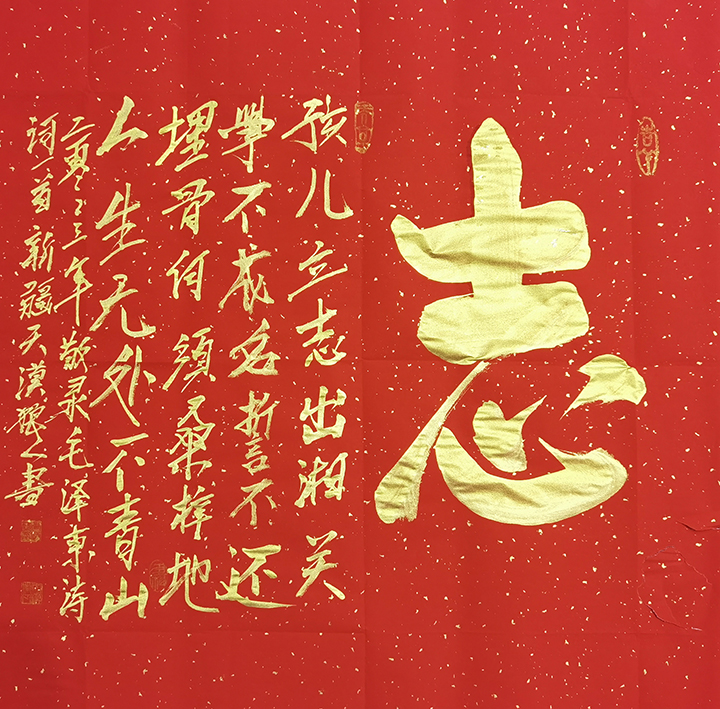 志
孩儿立志出湘关
學不成名誓不还
埋骨何須桑梓地
人生无处不青山
二零二三年敬录毛泽東诗
词一首新疆天漠人書